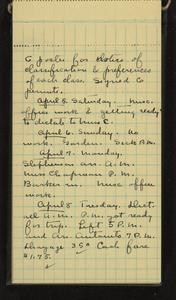 G scale for dates of
classification & preferences
of each class. Signed Co
permits.
April 5. Saturday. Misc.
office work & getting ready
to dictate to Miss C.
April 6. Sunday. No
work. Garden. Sick A.M.
April 7. Monday.
Stephenson an. A.M.
Miss Chapman P.M.
Barker in. Misc office
work.
April 8 Tuesday. Dict.
all A.M. P.M. got ready
for trip. Left 5 P.M.
and Arr. Antonito 7 P.M.
35¢ Cash fare
$1.75.